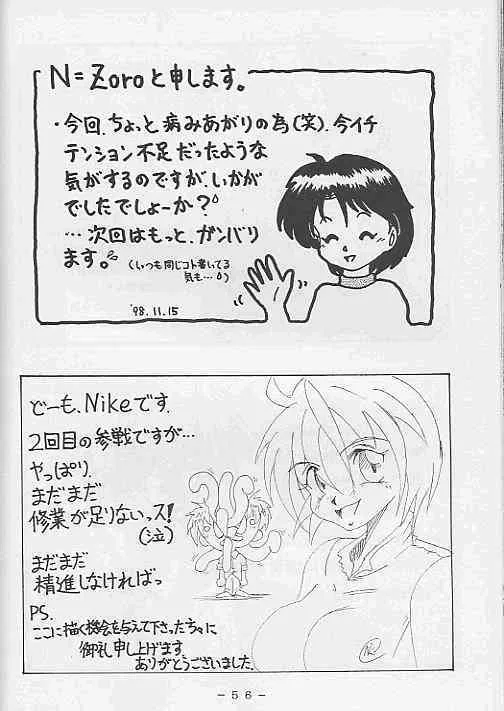 N=Zoroと申します。
・今回、ちょっと病みあがりの為(笑)、今イチ
テンション不足だったような
気がするのですが、いかが
でしたでしょーか?
…次回はもっと、ガンバリ
ます。
(いつも同じコト書いてる
気も…)
'98.11.15
どーも、Nikeです。
2回目の参戦ですが…
やっぱり、
まだまだ
修業が足りないっス!
(泣)
まだまだ
精進しなければっ
PS.
ここに描く機会を与えて下さった方々に
御礼申し上げます。
ありがとうございました。
-56-